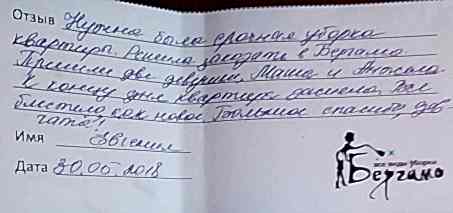 Отзыв Нужна была срочная уборка
квартиры. Решила заказать в Бергамо
Пришли две девушки, Маша и Анжела
К концу дня квартира сияла. Все
блестило как новое Большое спасибо, дев-
чата!
Имя Евгения
Дата 30.05 2018
все виды уборки
Бергамо